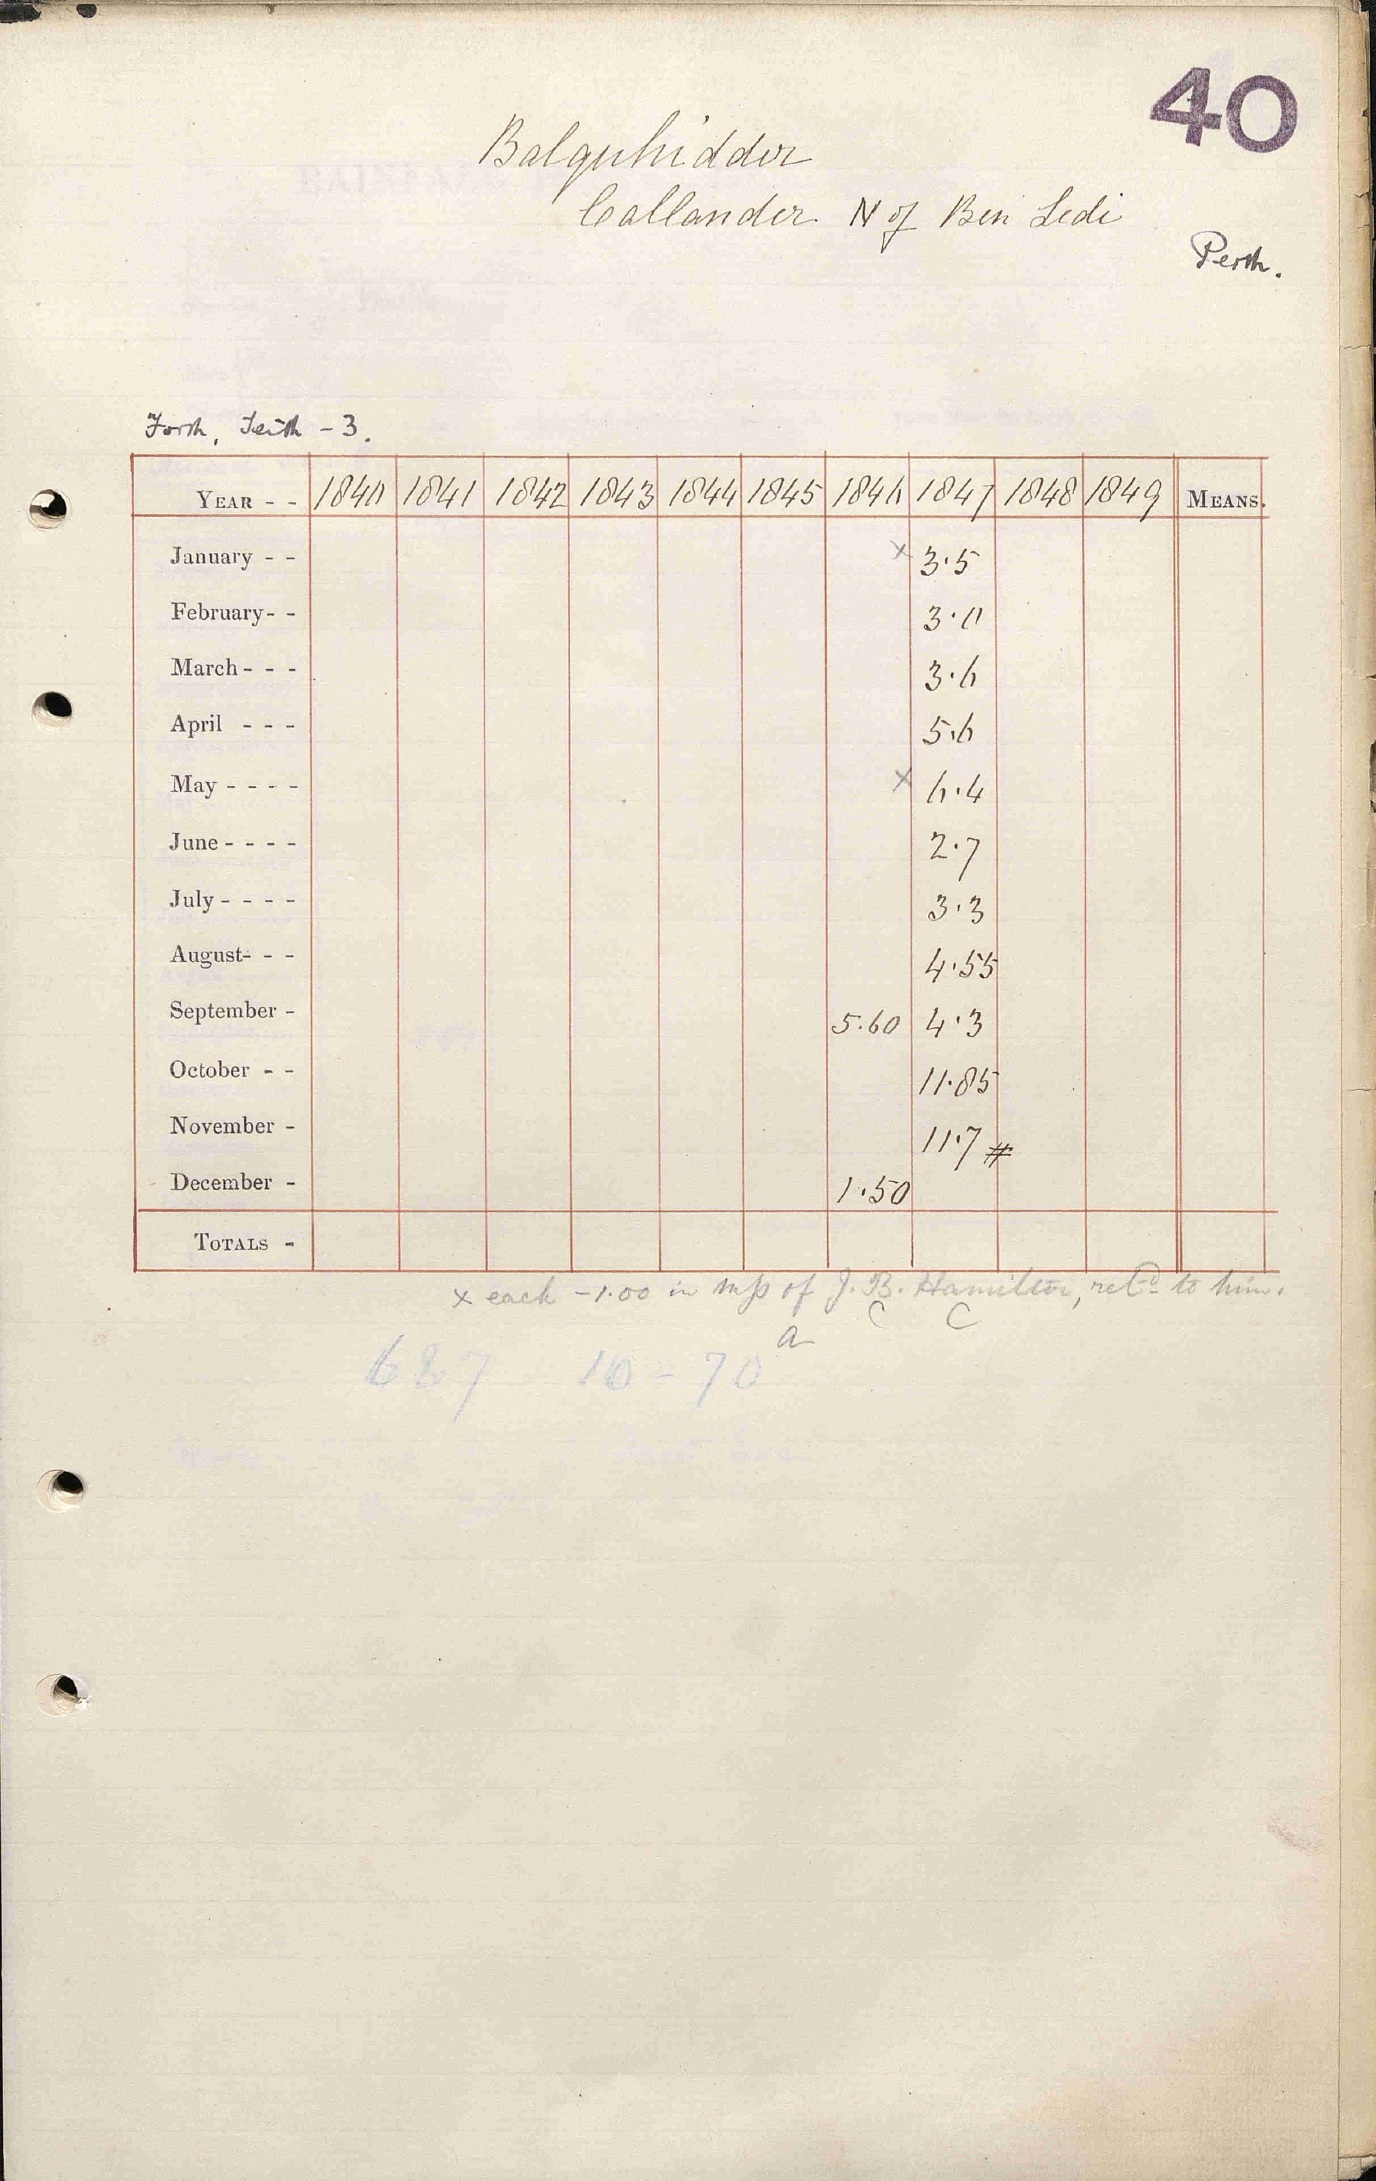 40
Balquhidder
Callander N of Ben Ledi
Perth.
Forth, Teith - 3.
YEAR - - 1840 1841 1842 1843 1844 1845 1846 1847 1848 1849 MEANS.
January - - x 3.5
February - - 3.0
March - - - 3.6
April - - - 5.6
May - - - - x 6.4
June - - - - 2.7
July - - - - 3.3
August - - - 4.55
September - 5.60 4.3
October - - 11.85
November - 11.7 #
December - 1.50
TOTALS -
x each -1.00 in mss of J. B. Hamilton, retd to him.
C C
a
687 10 - 70